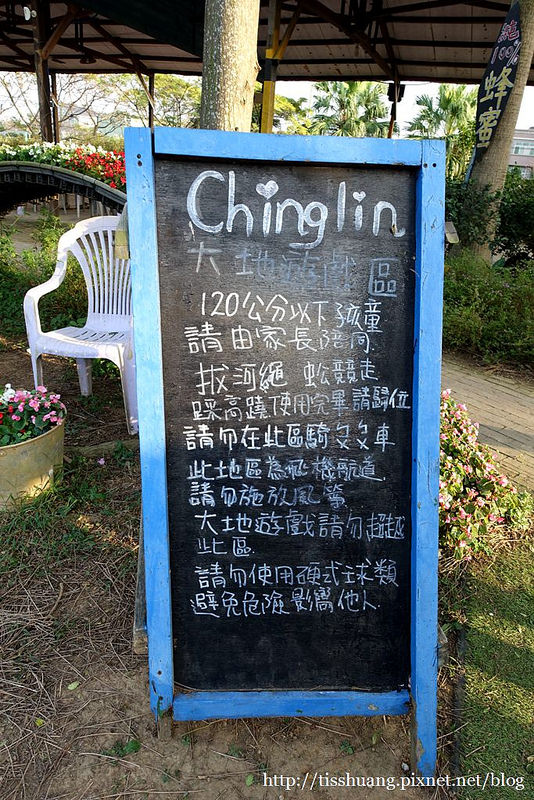 純
100%
蜂蜜
Chinglin
大地遊戲區
120公分以下孩童
請由家長陪同
拔河繩 蚣競走
踩高蹺使用完畢請歸位
請勿在此區騎ㄆㄆ車
此地區為飛機航道
請勿施放風箏
大地遊戲請勿超越
此區.
請勿使用硬式球類
避免危險影響他人.
http://tisshuang.pixnet.net/blog